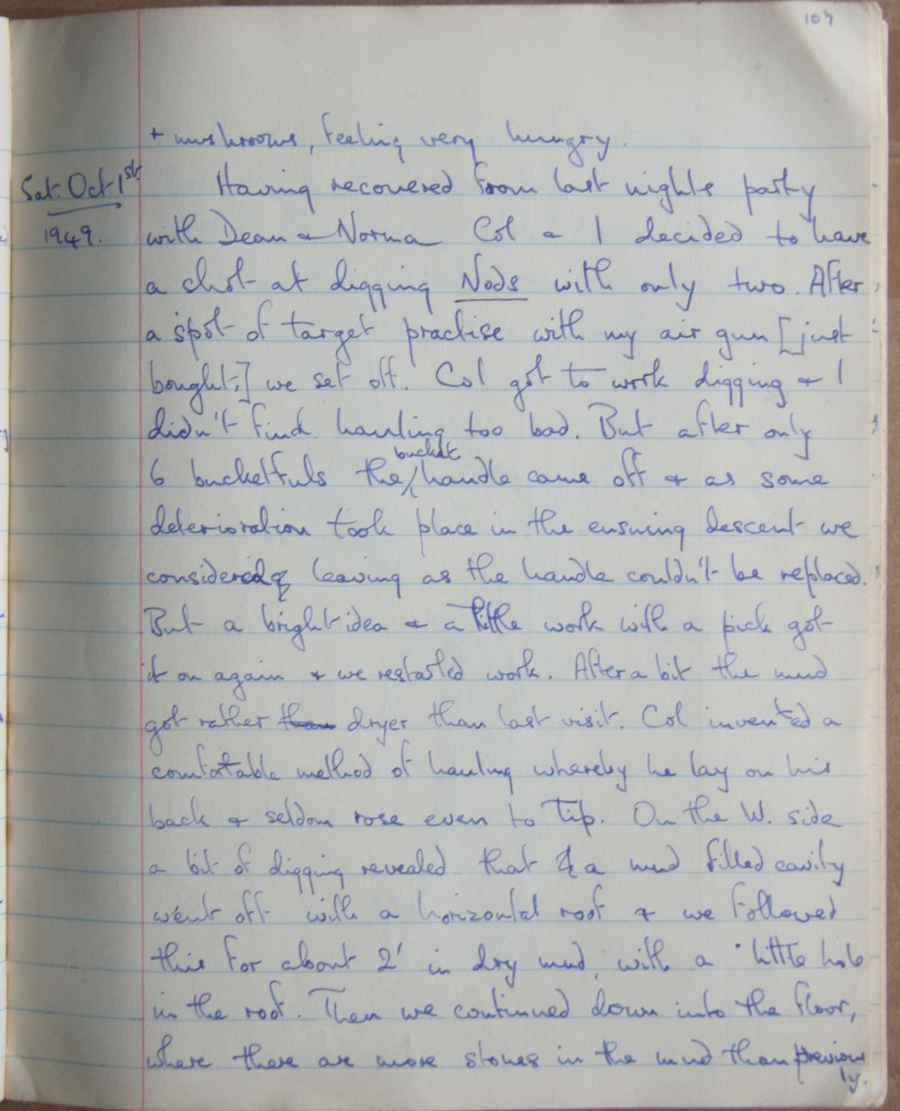 107
+ mushrooms, feeling very hungry.
Sat. Oct 1st
1949.
Having recovered from last nights party
with Dean & Norma Col & I decided to have
a shot at digging Nods with only two. After
a spot of target practise with my air gun [just
bought;] we set off. Col got to work digging & I
didn't find hauling too bad. But after only
bucket
6 bucketfuls the handle came off & as some
deterioration took place in the ensuing descent we
considered leaving as the handle couldn't be replaced.
But a bright idea & a little work with a pick got
it on again & we restarted work. After a bit the mud
got rather than dryer than last visit. Col invented a
comfortable method of hauling whereby he lay on his
back & seldom rose even to tip. On the W. side
a bit of digging revealed that a mud filled cavity
went off with a horizontal roof & we followed
this for about 2' in dry mud, with a little hole
in the roof. Then we continued down into the floor,
where there are more stones in the mud than previous
ly.